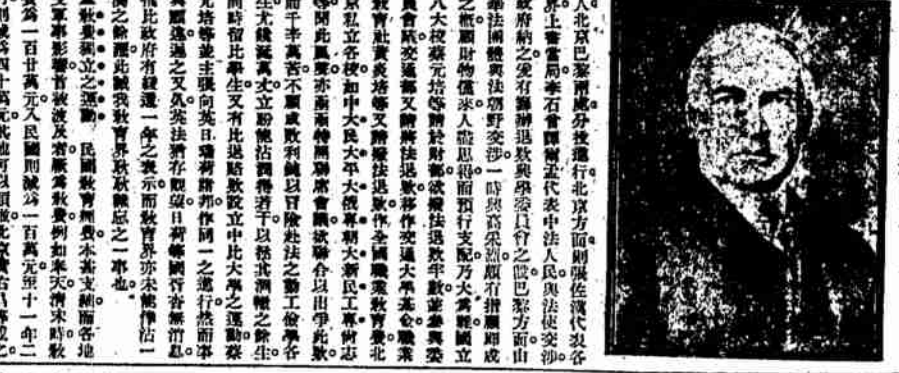 人北京巴黎兩處分投進行北京方面則張佐漢代表各
界上書當局李石曾鐸爾孟代表中法人民與法使交涉。
政府納之爰有籌辦退款興學委員會之設巴黎方面由
法國體與法朝野交涉。一時興高采烈頗有指顧成
之概顧財物儻來人思得而預行支配乃大為難國立
八大校蔡元培等請於財部欲撥法退款半數並參與委
員會而交通部又請將法退款移作交通大學基金職業
教育社黃炎培等又請撥法退款作全國職業教育費北
京私立各校如中大民大平大俄專朝大新民工專尚志
等聞此風聲亦兩兩特開聯席會議欲聯合以出爭此款
而千辛萬苦不顧成敗利鈍以冒險赴法之勤工儉學各
生尤錢誕萬丈立盼能沾潤得若干以拯其涸轍之餘生
同時留比學生又有比退賠款設立中比大學之運動蔡
元培等並主張向英日瑞荷諸邦作同一之進行然而事
與願違遲之又久英法猶存觀望日荷等國皆杳無消息
比政府有緩還一年之表示而教育界亦未能沾一
之餘此誠我教育界耿耿難忘之一事也。
教費獨立之運動 民國教育經費本甚支絀而各地
軍事影響首被波及者厥為教費例如奉天清末時教
費為一百廿萬元入民國則減為一百萬元至十一年二
則減為四十萬元其他可以